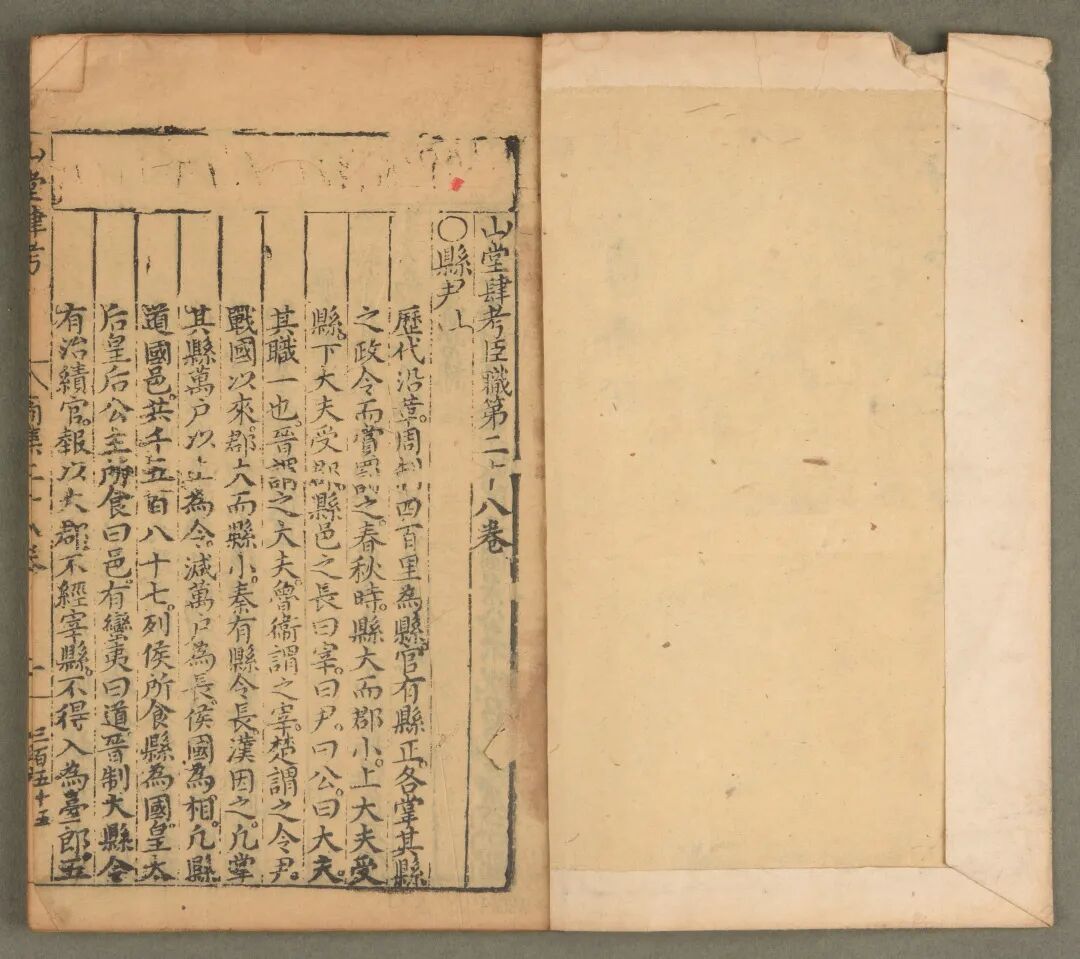 山堂肆考臣職第二十八卷
〇縣尹上
歷代沿革。周制四百里為縣。官有縣正。各掌其縣
之政令而賞罰之。春秋時。縣大而郡小。上大夫受
縣。下大夫受郡。縣邑之長曰宰。曰尹。曰公。曰大夫。
其職一也。晉謂之大夫。魯衞謂之宰。楚謂之令尹。
戰國以來。郡大而縣小。秦有縣令長。漢因之。凡掌
其縣萬戶以上為令。減萬戶為長。侯國為相。凡縣
道國邑。共千五百八十七。列侯所食縣為國。皇太
后皇后公主所食曰邑。有蠻夷曰道。晉制大縣令
有治績官。報以大郡。不經宰縣。不得入為臺郎。五
山堂肆考
三百五十五